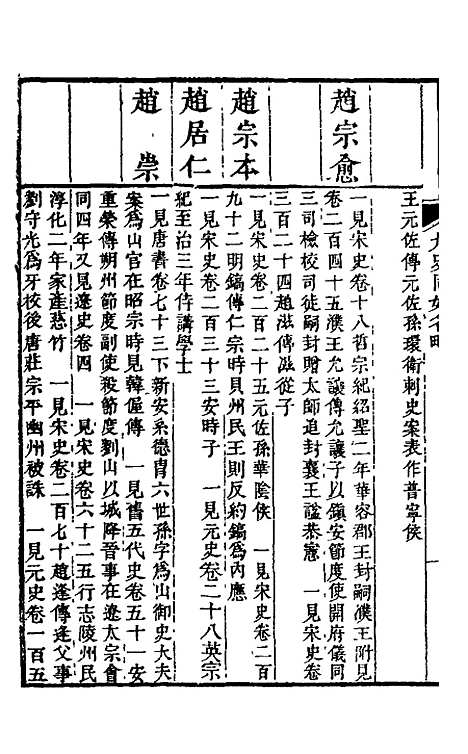 九史同姓名略
王元佐傳元佐孫環衛刺史案表作普寧侯
趙宗愈
一見宋史卷十八哲宗紀紹聖二年華容郡王封嗣濮王附見
卷二百四十五濮王允讓傳允讓子以鎮安節度使開府儀同
三司檢校司徒嗣封贈太師追封襄王諡恭憲　一見宋史卷
三百二十四趙滋傳滋從子
趙宗本
一見宋史卷二百二十五元佐孫華陰侯　一見宋史卷二百
九十二明鎬傳仁宗時貝州民王則反約鎬為內應
趙居仁
一見宋史卷二百三十三安時子　一見元史卷二十八英宗
紀至治三年侍講學士
趙崇
一見唐書卷七十三下新安系德胄六世孫字為山御史大夫
案為山官在昭宗時見韓偓傳　一見舊五代史卷五十一安
重榮傳朔州節度副使殺節度劉山以城降晉事在遼太宗會
同四年又見遼史卷四　一見宋史卷六十二五行志陵州民
淳化二年家產慈竹　一見宋史卷二百七十趙逢傳逢父事
劉守光為牙校後唐莊宗平幽州被誅　一見元史卷一百五